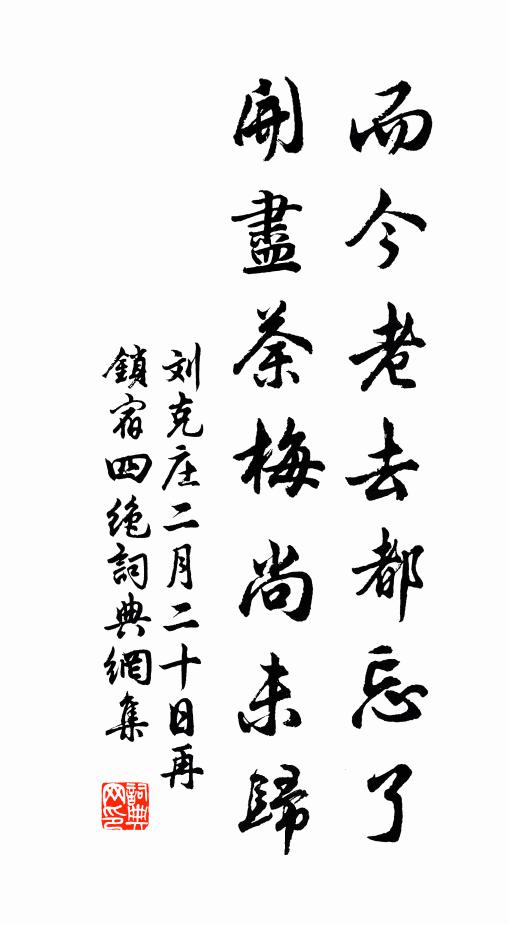 而今老去都忘了
開盡荼梅尚未歸
刘克庄二月二十日再
鎖宿四绝詞典網集
詞典网印